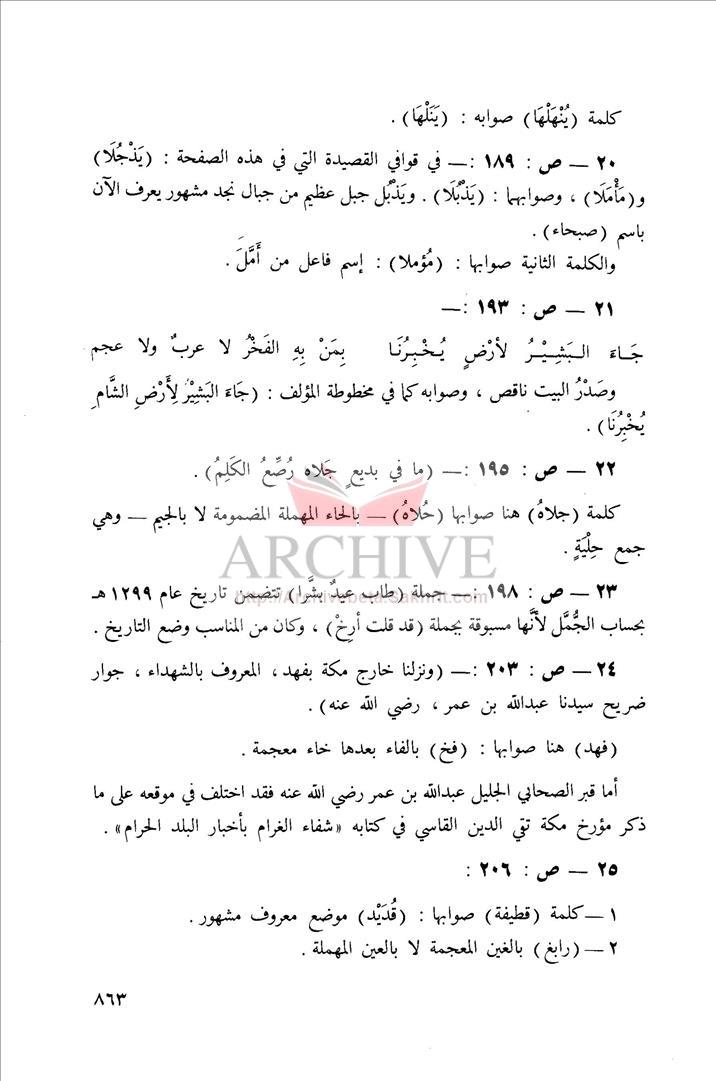 كلمة (يُنْهَلْهَا) صوابه : (يَنَلْهَا) .
٢٠ — ص : ١٨٩ :— في قوافي القصيدة التي في هذه الصفحة : (يَذْجُلَا)
و(مَأْمَلَا) ، وصوابهما : (يَذْبُلَا) . ويَذْبُل جبل عظيم من جبال نجد مشهور يعرف الآن
باسم (صبحاء) .
والكلمة الثانية صوابها : (مُؤملا) : إسم فاعل من أَمَّلَ .
٢١ — ص : ١٩٣ :—
جَاءَ البَشِيْرُ لأرْضٍ يُخْبِرُنَا بِمَنْ بِهِ الفَخْرُ لا عربٌ ولا عجم
وصَدْرُ البيت ناقص ، وصوابه كما في مخطوطة المؤلف : (جَاءَ البَشِيْرُ لِأَرْضِ الشَّامِ
يُخْبِرُنَا) .
٢٢ — ص : ١٩٥ :— (ما في بديعٍ جَلاه رُصِّعُ الكَلِمُ) .
كلمة (جلاهُ) هنا صوابها (حُلاهُ) — بالحاء المهملة المضمومة لا بالجيم — وهي
جمع حِلْيَةٍ .
ARCHIVE
٢٣ — ص : ١٩٨ :— جملة (طاب عيدٌ بشَّرا) تتضمن تاريخ عام ١٢٩٩ هـ
بحساب الجُّمَّل لأنَّها مسبوقة بجملة (قد قلت أرخْ) ، وكان من المناسب وضع التاريخ .
٢٤ — ص : ٢٠٣ :— (ونزلنا خارج مكة بفهد ، المعروف بالشهداء ، جوار
ضريح سيدنا عبدالله بن عمر ، رضي الله عنه) .
(فهد) هنا صوابها : (فخ) بالفاء بعدها خاء معجمة .
أما قبر الصحابي الجليل عبدالله بن عمر رضي الله عنه فقد اختلف في موقعه على ما
ذكر مؤرخ مكة تقي الدين الفاسي في كتابه «شفاء الغرام بأخبار البلد الحرام» .
٢٥ — ص : ٢٠٦ :
١ — كلمة (قطيفة) صوابها : (قُدَيْد) موضع معروف مشهور .
٢ — (رابغ) بالغين المعجمة لا بالعين المهملة .
٨٦٣